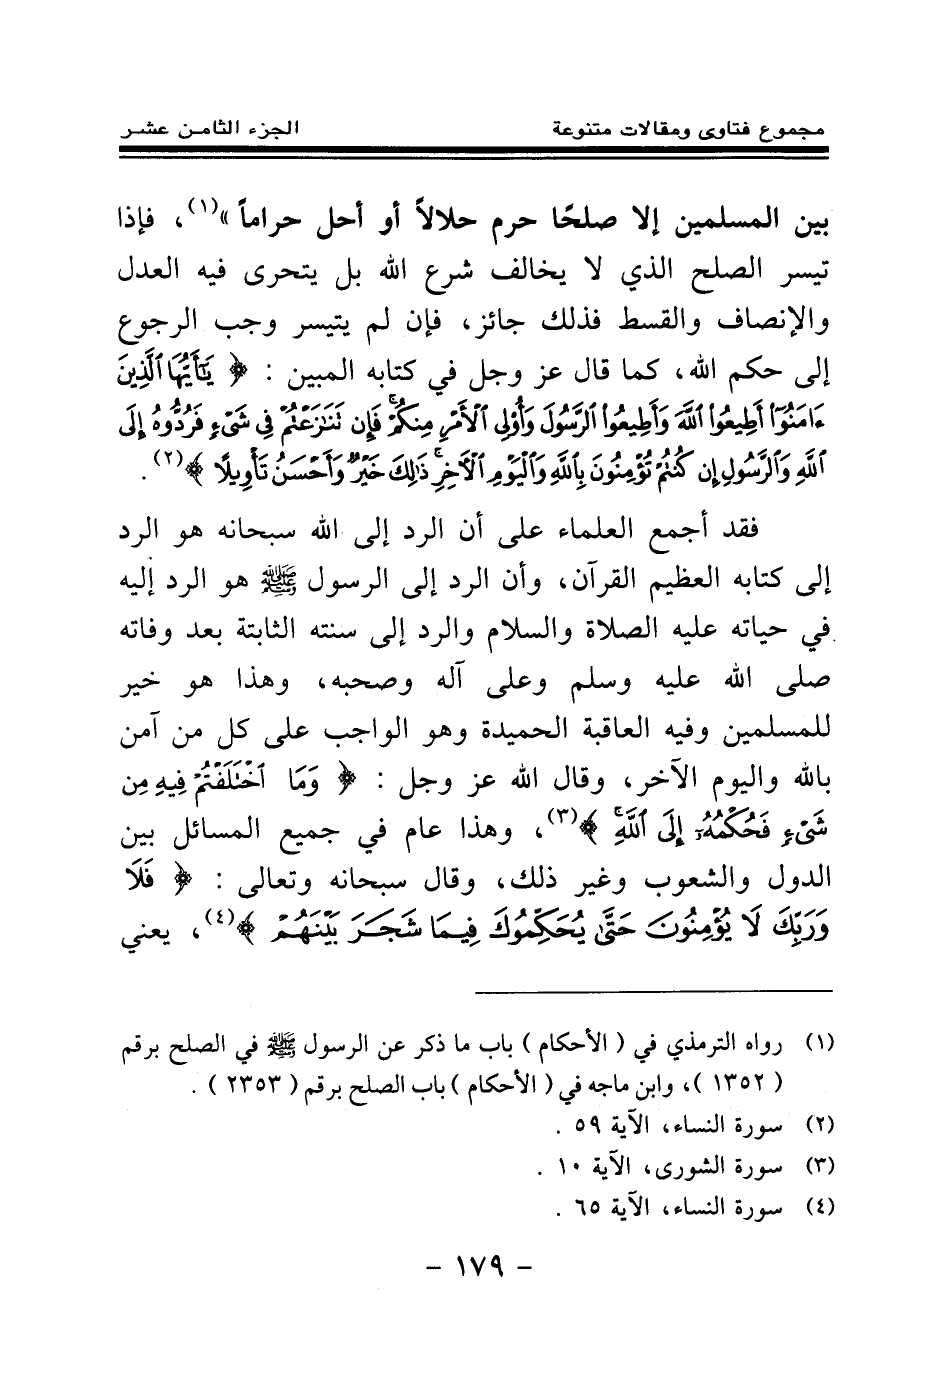 مجموع فتاوى ومقالات متنوعة الجزء الثامن عشر
بين المسلمين إلا صلحًا حرم حلالاً أو أحل حراماً »(١)، فإذا
تيسر الصلح الذي لا يخالف شرع الله بل يتحرى فيه العدل
والإنصاف والقسط فذلك جائز، فإن لم يتيسر وجب الرجوع
إلى حكم الله، كما قال عز وجل في كتابه المبين : ﴿ يَٰٓأَيُّهَا ٱلَّذِينَ
ءَامَنُوٓا۟ أَطِيعُوا۟ ٱللَّهَ وَأَطِيعُوا۟ ٱلرَّسُولَ وَأُو۟لِى ٱلْأَمْرِ مِنكُمْ ۖ فَإِن تَنَٰزَعْتُمْ فِى شَىْءٍ فَرُدُّوهُ إِلَى
ٱللَّهِ وَٱلرَّسُولِ إِن كُنتُمْ تُؤْمِنُونَ بِٱللَّهِ وَٱلْيَوْمِ ٱلْءَاخِرِ ۚ ذَٰلِكَ خَيْرٌ وَأَحْسَنُ تَأْوِيلًا ﴾(٢) .
فقد أجمع العلماء على أن الرد إلى الله سبحانه هو الرد
إلى كتابه العظيم القرآن، وأن الرد إلى الرسول ﷺ هو الرد إليه
في حياته عليه الصلاة والسلام والرد إلى سنته الثابتة بعد وفاته
صلى الله عليه وسلم وعلى آله وصحبه، وهذا هو خير
للمسلمين وفيه العاقبة الحميدة وهو الواجب على كل من آمن
بالله واليوم الآخر، وقال الله عز وجل : ﴿ وَمَا ٱخْتَلَفْتُمْ فِيهِ مِن
شَىْءٍ فَحُكْمُهُۥٓ إِلَى ٱللَّهِ ۚ ﴾(٣)، وهذا عام في جميع المسائل بين
الدول والشعوب وغير ذلك، وقال سبحانه وتعالى : ﴿ فَلَا
وَرَبِّكَ لَا يُؤْمِنُونَ حَتَّىٰ يُحَكِّمُوكَ فِيمَا شَجَرَ بَيْنَهُمْ ﴾(٤)، يعني
(١) رواه الترمذي في ( الأحكام ) باب ما ذكر عن الرسول ﷺ في الصلح برقم
( ١٣٥٢ )، وابن ماجه في ( الأحكام ) باب الصلح برقم ( ٢٣٥٣ ) .
(٢) سورة النساء، الآية ٥٩ .
(٣) سورة الشورى، الآية ١٠ .
(٤) سورة النساء، الآية ٦٥ .
- ١٧٩ -